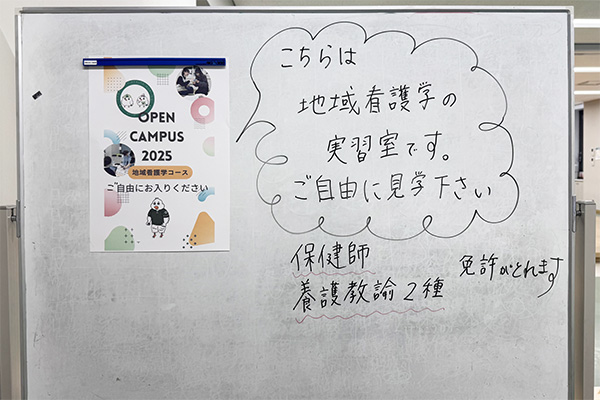 OPEN
CAMPUS
2025
地域看護学コース
ご自由にお入りください
こちらは
地域看護学の
実習室です。
ご自由に見学下さい
保健師
養護教諭2種
免許がとれます